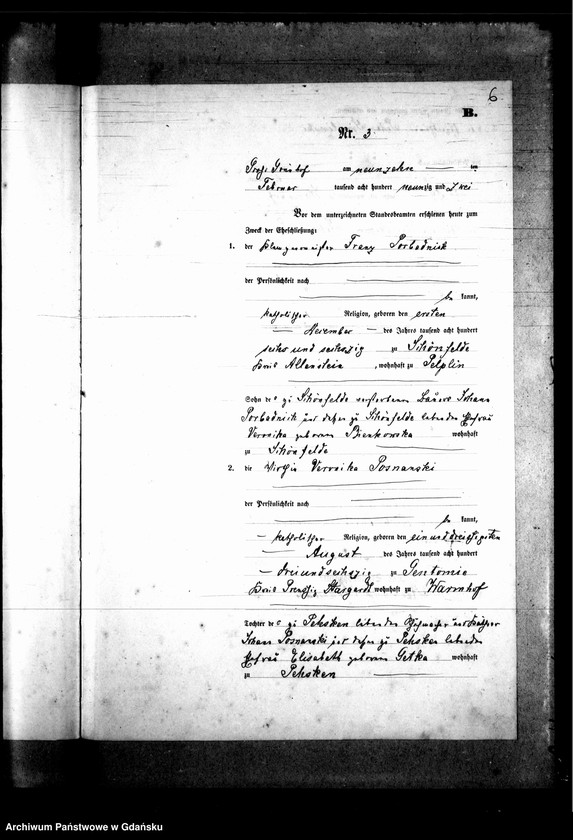 6
B.
Nr. 3
am neunzehn ten
Februar tausend acht hundert neunzig und zwei
Vor dem unterzeichneten Standesbeamten erschienen heute zum
Zweck der Eheschließung:
1. der Franz Porbadnik
der Persönlichkeit nach
be kannt,
katholischer Religion, geboren den ersten
November des Jahres tausend acht hundert
sechs und sechszig zu Schönfelde
Kreis Allenstein, wohnhaft zu Pelplin
Sohn des zu Schönfelde verstorbenen Bauers Johann
Porbadnik und dessen zu Schönfelde lebenden Ehefrau
Veronika geborene Bienkowska wohnhaft
zu Schönfelde
2. die Veronika Posnanski
der Persönlichkeit nach
be kannt,
katholischer Religion, geboren den einunddreißigsten
August des Jahres tausend acht hundert
dreiundsechszig zu Gentomie
Kreis Preußig Stargardt wohnhaft zu Warmhof
Tochter des zu Pehsken lebenden
Johann Posnanski und dessen zu Pehsken lebenden
Ehefrau Elisabeth geborene Getka wohnhaft
zu Pehsken
Archiwum Państwowe w Gdańsku